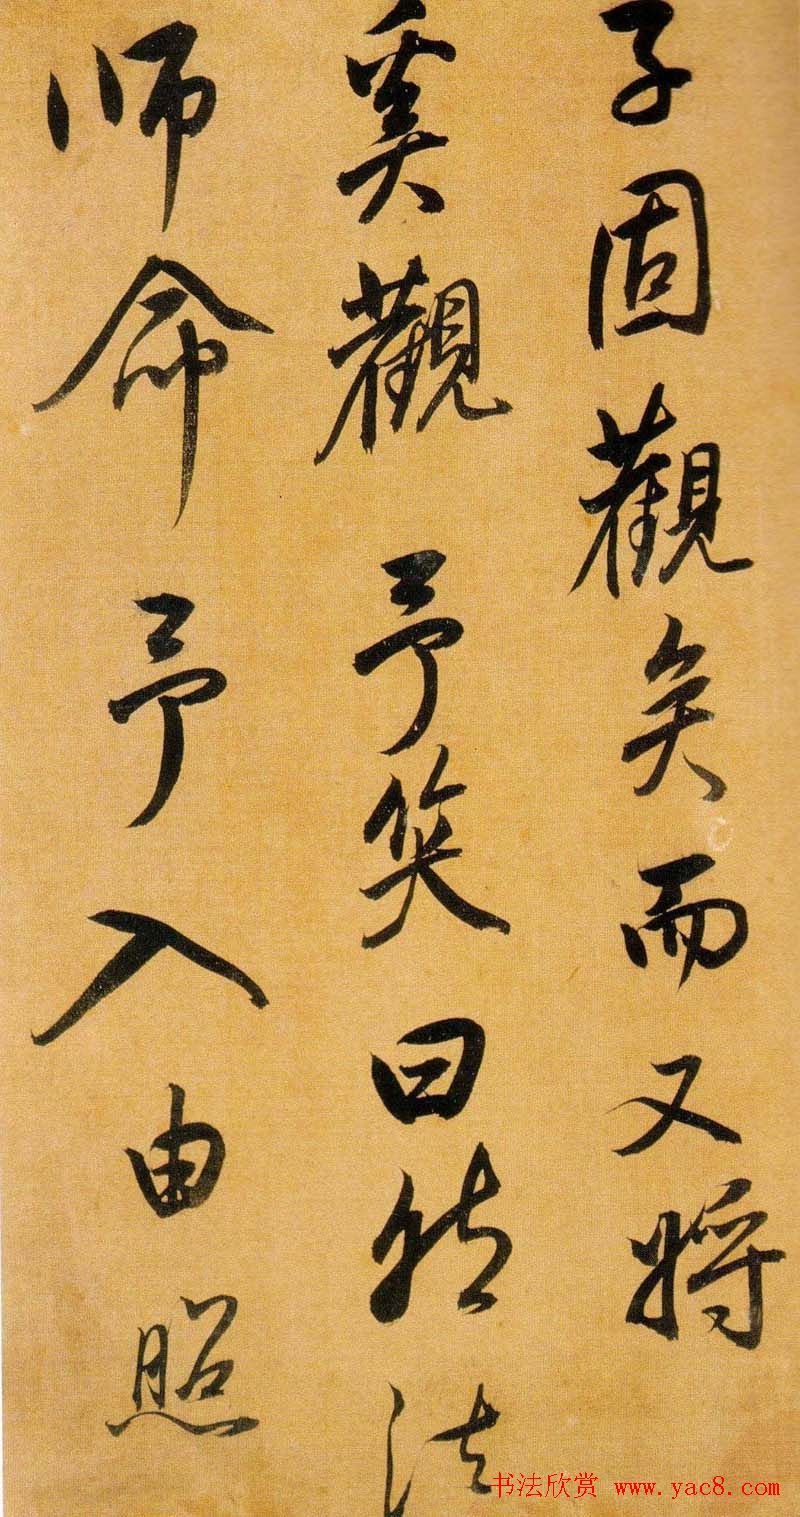 子固觀矣而又將
奚觀予笑曰然法
师命予入由照
书法欣赏 www.yac8.com